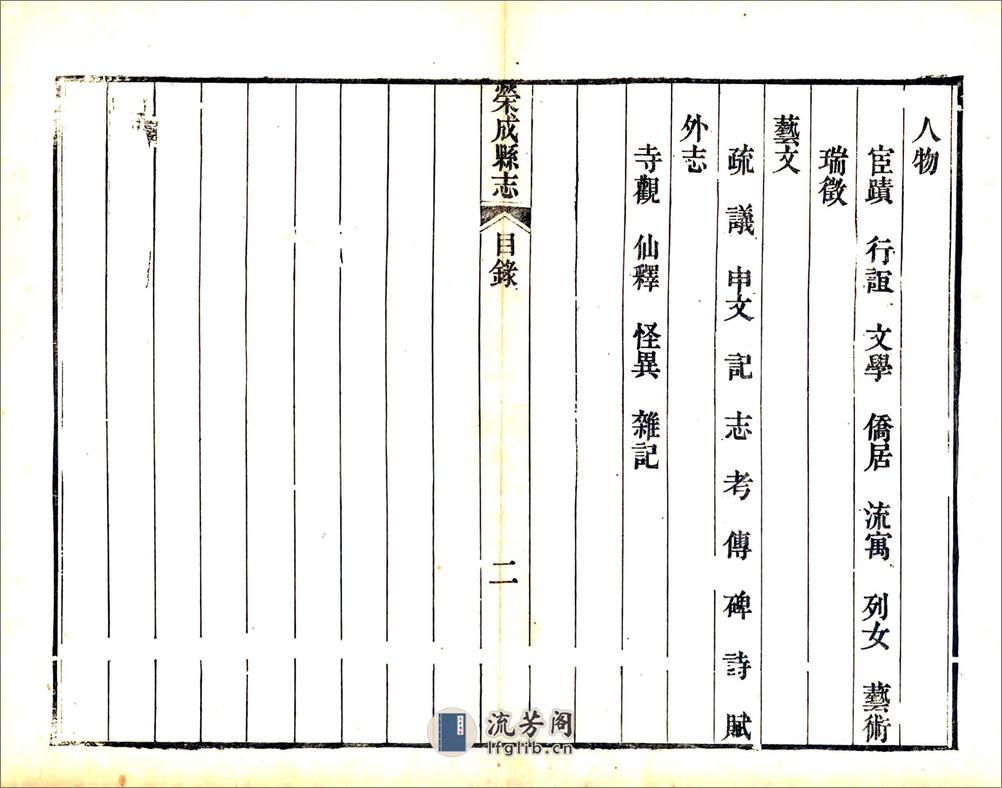 人物
宦蹟 行誼 文學 僑居 流寓 列女 藝術
瑞徵
藝文
疏 議 申文 記 志 考 傳 碑 詩 賦
外志
寺觀 仙釋 怪異 雜記
榮成縣志 目錄 二
流芳阁
lfglib.cn